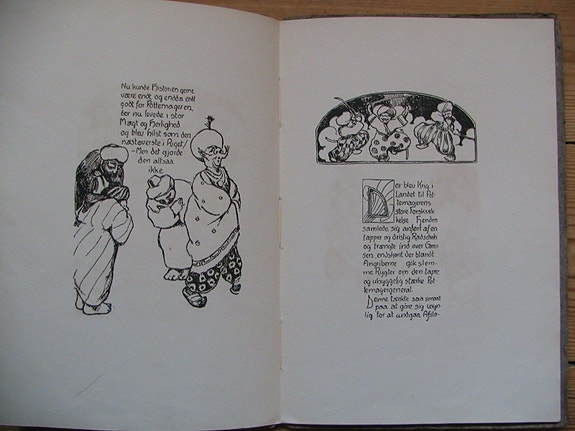 Nu kunde Historien gerne
være endt og endda endt
godt for Pottemageren,
der nu levede i stor
Magt og Herlighed
og blev hilst som den
næstøverste i Riget!
-Men det gjorde
den altsaa
ikke.
Der blev Krig i
Landet til Pot-
temagerens
store Forskræk-
kelse. Fjenden
samlede sig anført af en
tapper og dristig Radschah
og trængte ind over Græn-
sen, endskønt der blandt
Angriberne gik slem-
me Rygter om den tapre
og uhyggelig stærke Pot-
temagergeneral.
Denne tænkte saa smaat
paa at gøre sig usyn-
lig for at undgaa Afslø-